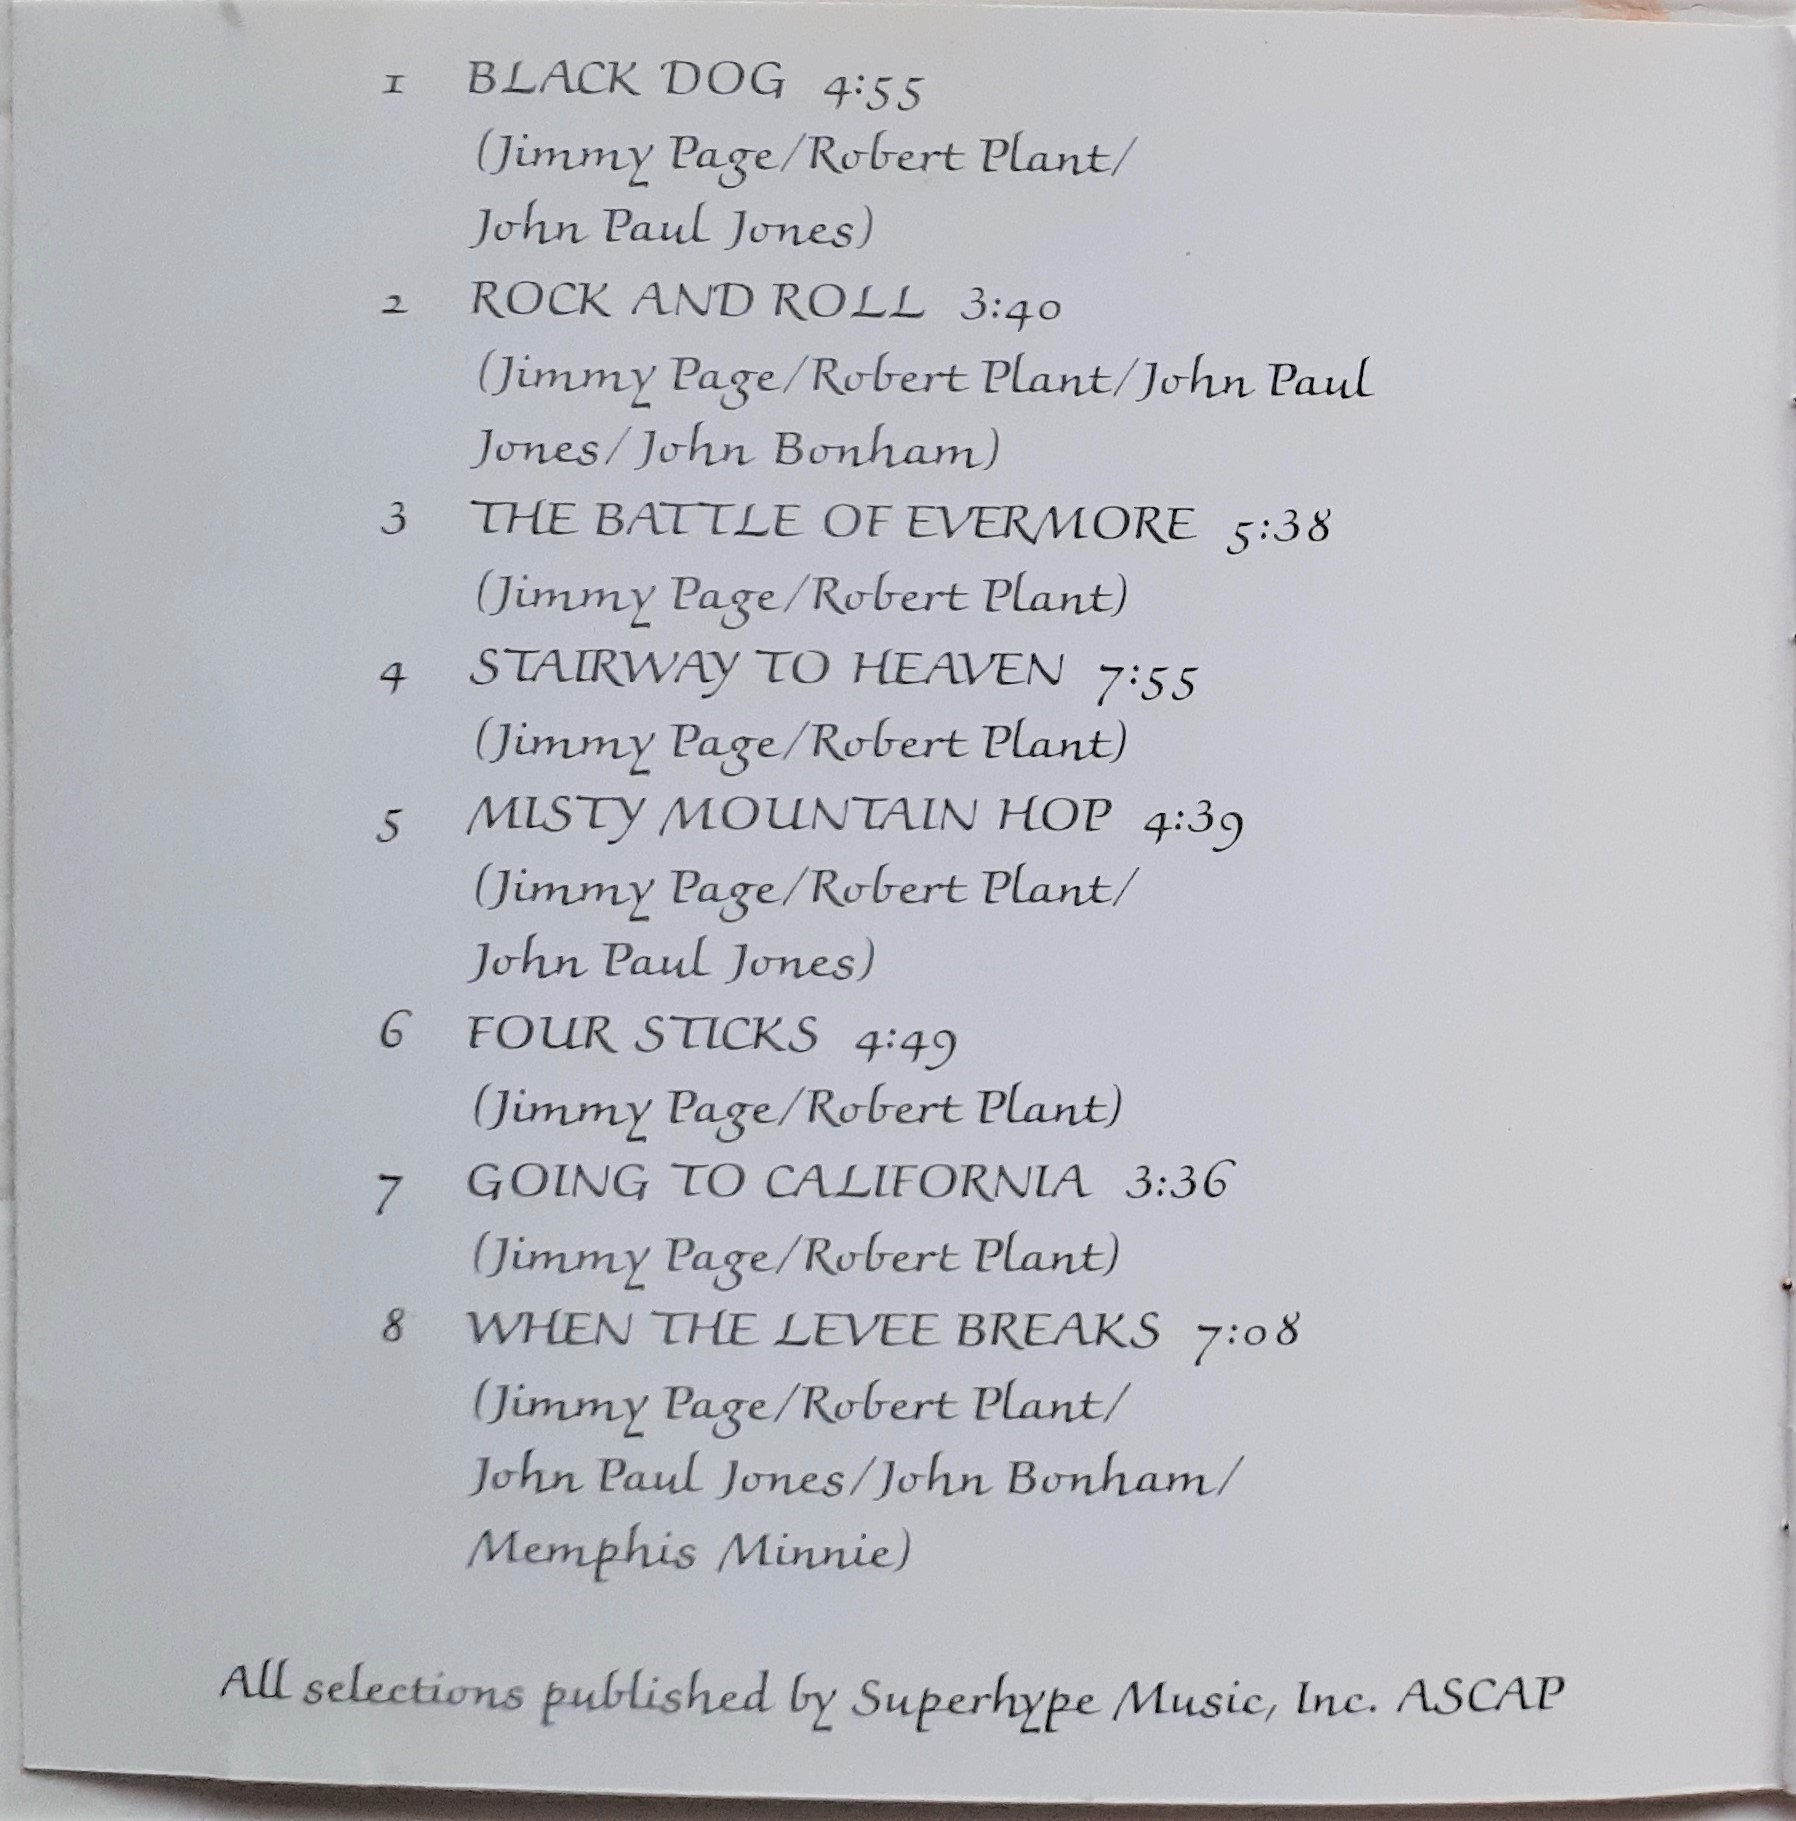 1 BLACK DOG 4:55
(Jimmy Page/Robert Plant/
John Paul Jones)
2 ROCK AND ROLL 3:40
(Jimmy Page/Robert Plant/John Paul
Jones/John Bonham)
3 THE BATTLE OF EVERMORE 5:38
(Jimmy Page/Robert Plant)
4 STAIRWAY TO HEAVEN 7:55
(Jimmy Page/Robert Plant)
5 MISTY MOUNTAIN HOP 4:39
(Jimmy Page/Robert Plant/
John Paul Jones)
6 FOUR STICKS 4:49
(Jimmy Page/Robert Plant)
7 GOING TO CALIFORNIA 3:36
(Jimmy Page/Robert Plant)
8 WHEN THE LEVEE BREAKS 7:08
(Jimmy Page/Robert Plant/
John Paul Jones/John Bonham/
Memphis Minnie)
All selections published by Superhype Music, Inc. ASCAP